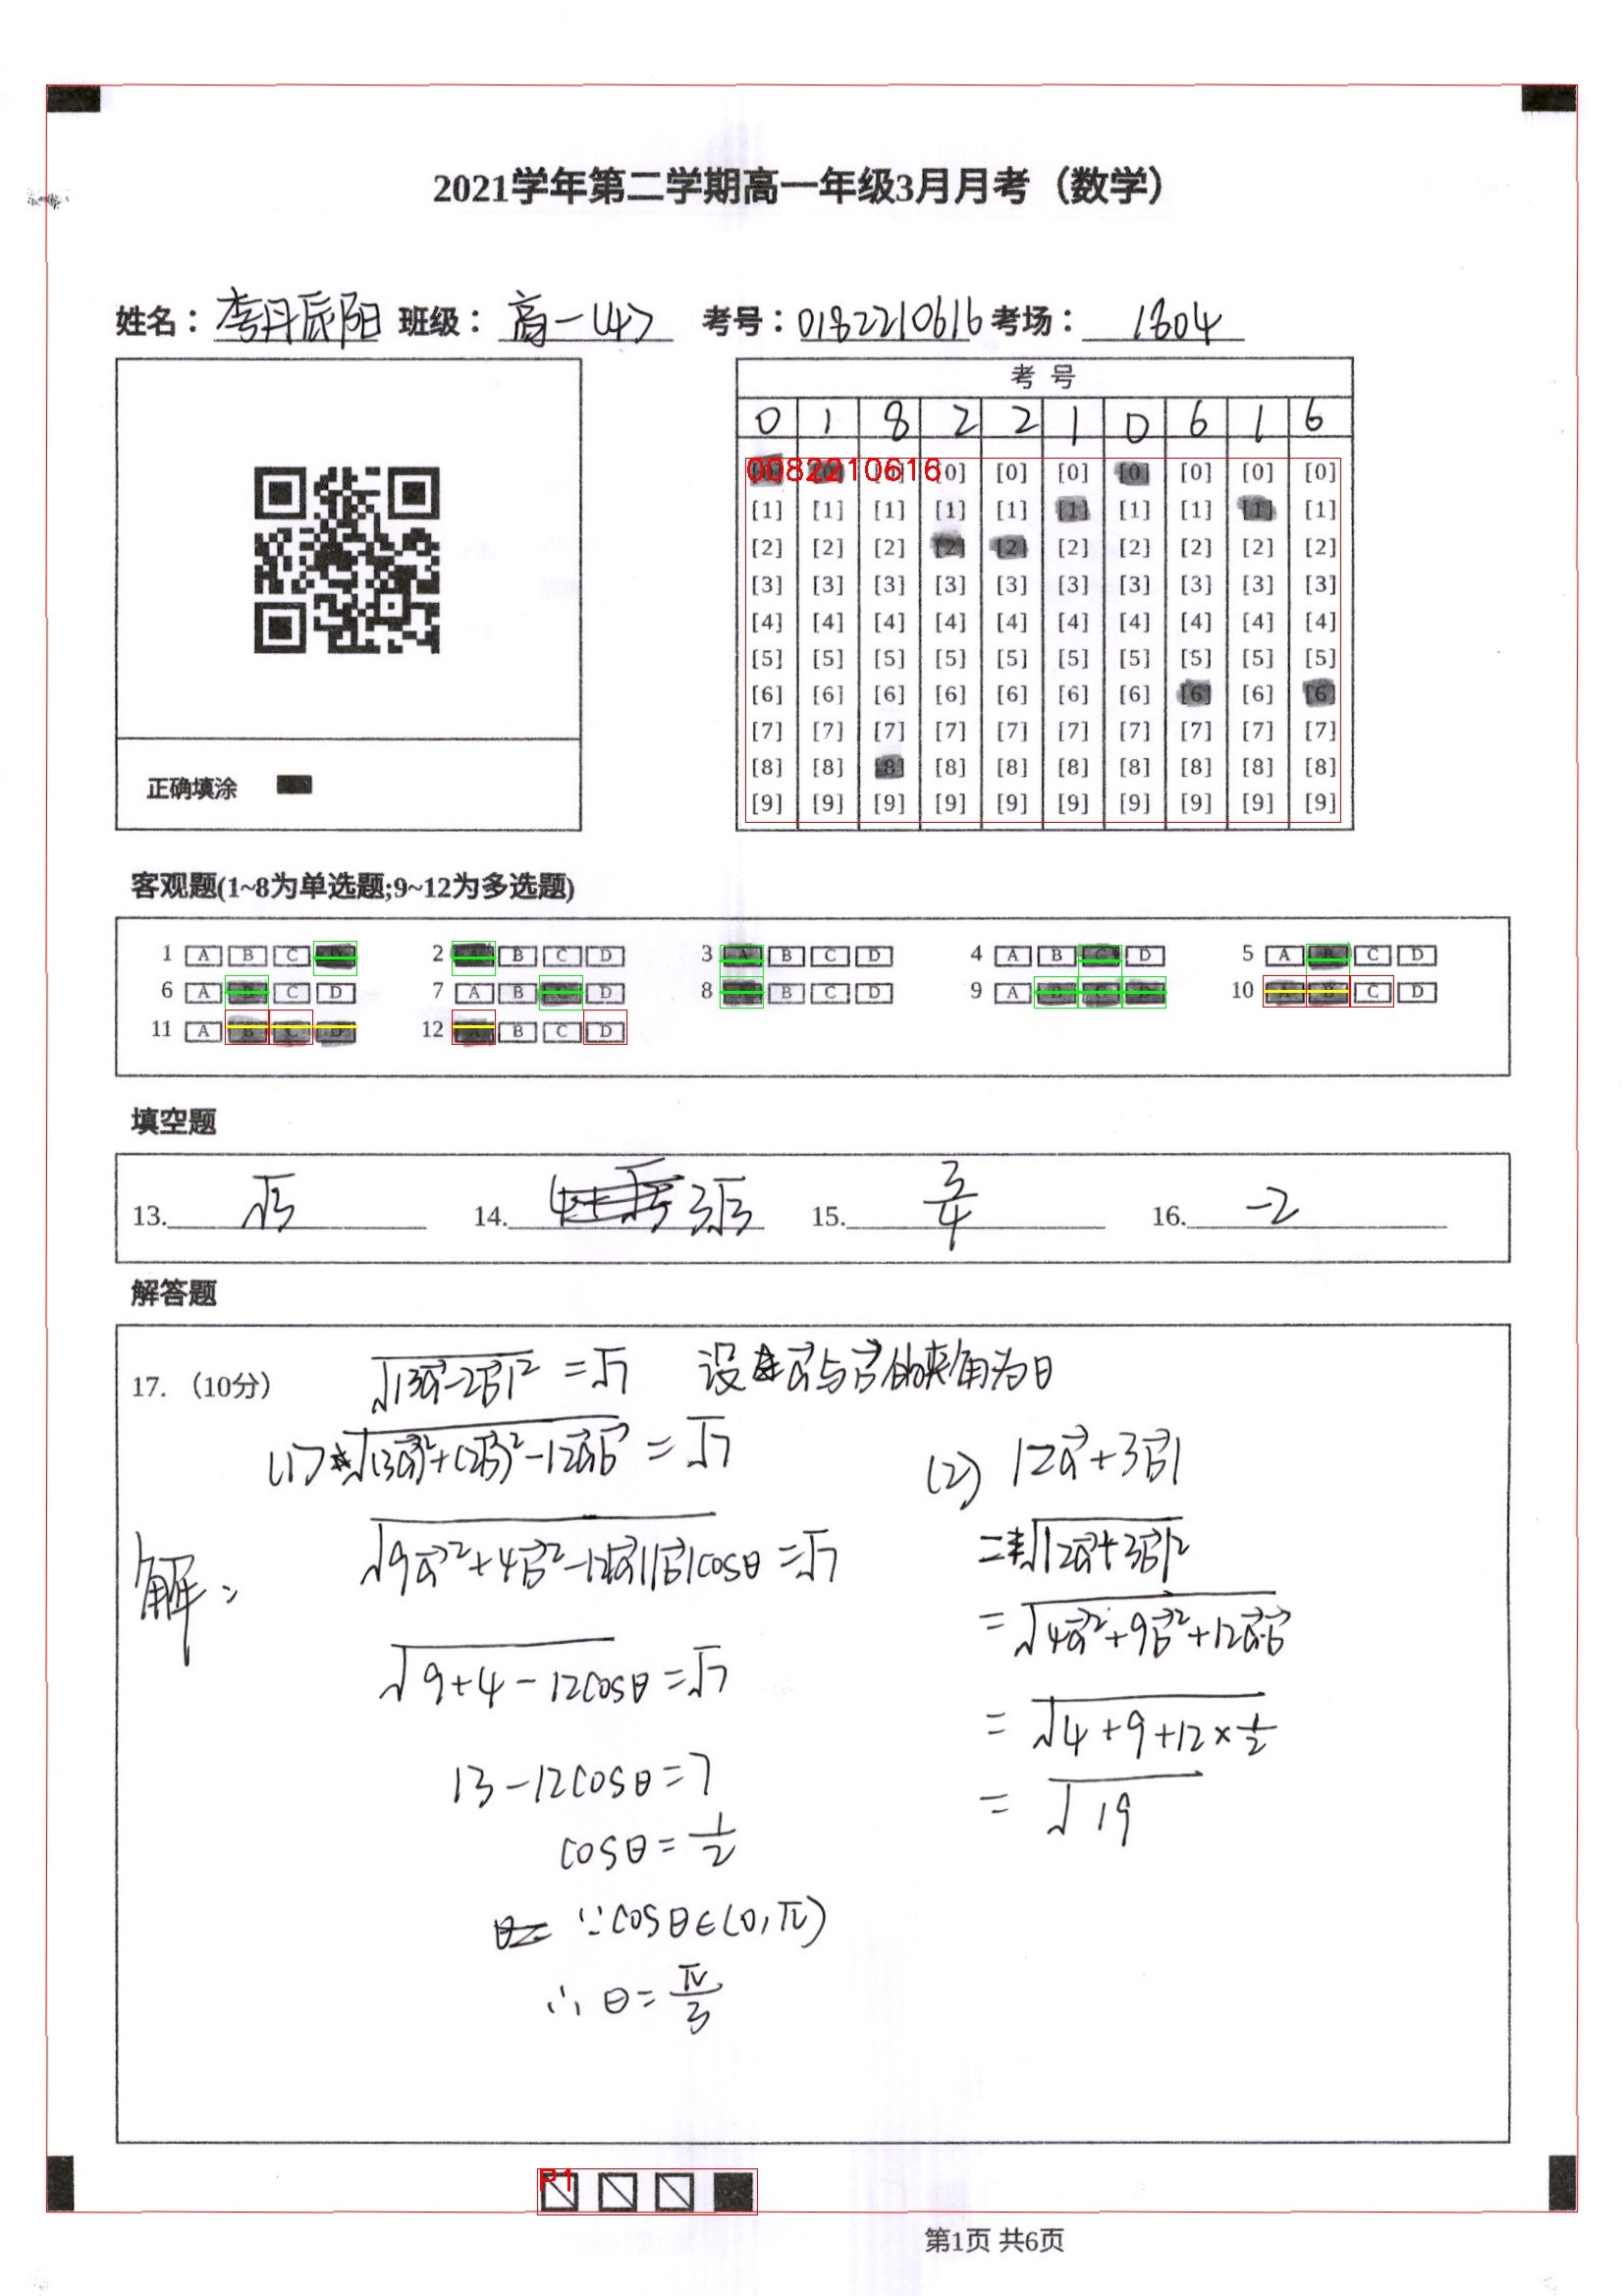 2021学年第二学期高一年级3月月考（数学）
姓名： 李丹辰阳 班级： 高一(4) 考号：0182210616 考场： 1804
考 号
0 1 8 2 2 1 0 6 1 6
0082210616
[0] [0] [0] [0] [0] [0] [0] [0] [0] [0]
[1] [1] [1] [1] [1] [1] [1] [1] [1] [1]
[2] [2] [2] [2] [2] [2] [2] [2] [2] [2]
[3] [3] [3] [3] [3] [3] [3] [3] [3] [3]
[4] [4] [4] [4] [4] [4] [4] [4] [4] [4]
[5] [5] [5] [5] [5] [5] [5] [5] [5] [5]
[6] [6] [6] [6] [6] [6] [6] [6] [6] [6]
[7] [7] [7] [7] [7] [7] [7] [7] [7] [7]
[8] [8] [8] [8] [8] [8] [8] [8] [8] [8]
[9] [9] [9] [9] [9] [9] [9] [9] [9] [9]
正确填涂
客观题(1~8为单选题;9~12为多选题)
1 A B C D 2 A B C D 3 A B C D 4 A B C D 5 A B C D
6 A B C D 7 A B C D 8 A B C D 9 A B C D 10 A B C D
11 A B C D 12 A B C D
填空题
13. √3 14. 3√3 15. 3/4 16. -2
解答题
17.（10分） √|3a⃗-2b⃗|² = √7 设a⃗与b⃗的夹角为θ
(1) √(3a⃗)²+(2b⃗)²-12a⃗b⃗ = √7
解： √9a⃗²+4b⃗²-12|a⃗||b⃗|cosθ = √7
√9+4-12cosθ = √7
13-12cosθ=7
cosθ=1/2
∵cosθ∈(0,π)
∴θ=π/3
(2) |2a⃗+3b⃗|
=√|2a⃗+3b⃗|²
=√4a⃗²+9b⃗²+12a⃗·b⃗
=√4+9+12×1/2
=√19
P1
第1页 共6页